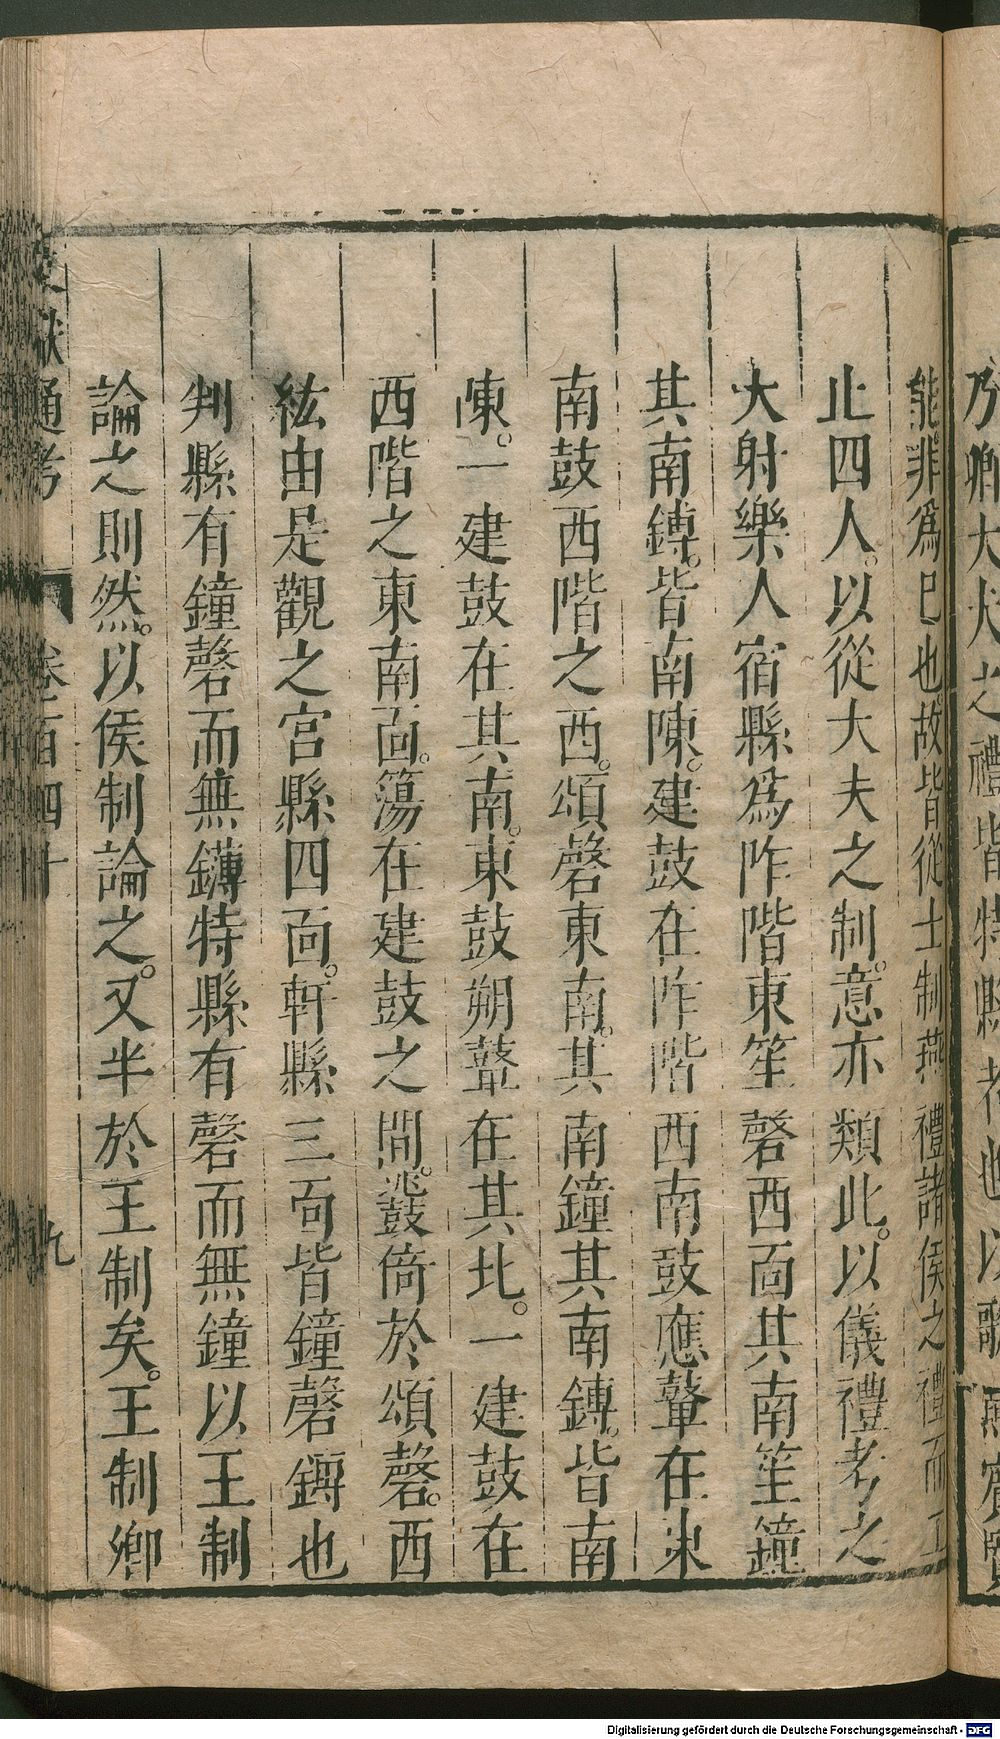 乃卿大夫之禮皆特縣者也以歌
能非爲已也故皆從士制燕禮諸侯之禮而工
止四人以從大夫之制意亦類此以儀禮考之
大射樂人宿縣爲阼階東笙磬西面其南笙鐘
其南鏄皆南陳建鼓在阼階西南鼓應鼙在東
南鼓西階之西頌磬東南其南鐘其南鏄皆南
陳一建鼓在其南東鼓朔鼙在其北一建鼓在
西階之東南面簜在建鼓之間鼗倚於頌磬西
紘由是觀之宮縣四面軒縣三面皆鐘磬鏄也
判縣有鐘磬而無鏄特縣有磬而無鐘以王制
論之則然以侯制論之又半於王制矣王制卿
文獻通考 卷一百四十 九
Digitalisierung gefördert durch die Deutsche Forschungsgemeinschaft - DFG